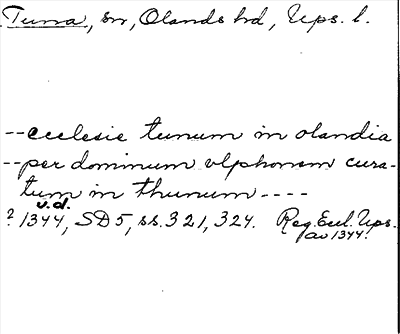 Tuna, sn, Olands hd, Ups. l.
--ecclesie tunum in olandia
--per dominum vlphonem cura-
tum in thunum ----
v.d.
? 1344, SD5, ss. 321, 324. Reg. Eccl. Ups.
av 1344.